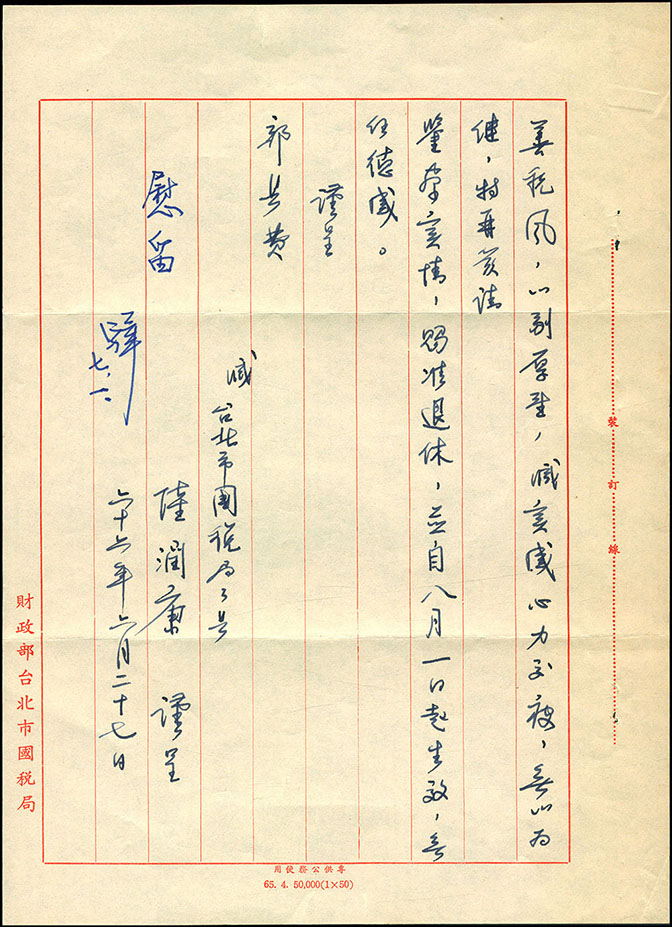 善稅風，以副厚望，職實感心力交疲，無以為
繼，特再簽請
鑒察實情，賜准退休，並自八月一日起生效，無
任德感。
謹呈
部長費
職 台北市國稅局々長
陸潤康 謹呈
六十六年六月二十七日
慰留
驊
裝訂線
財政部台北市國稅局
專供公務使用
65. 4. 50,000(1×50)